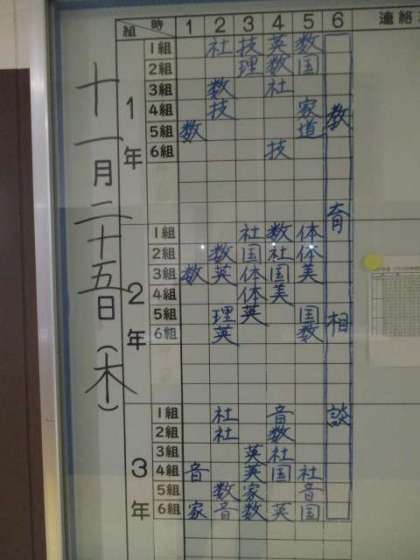 十一月二十五日(木)
組 時 1 2 3 4 5 6 連絡
1年
1組 社 技 英 数
2組 理 数 国
3組 数 社
4組 技 家
5組 数 道
6組 技
2年
1組 社 数 体
2組 数 国 社 体
3組 数 英 体 国 美
4組 体 美
5組 理 英 国
6組 英 数
3年
1組 社 音
2組 社 数
3組 英 社
4組 音 英 国 社
5組 数 家 音
6組 家 音 数 英 国
教育相談